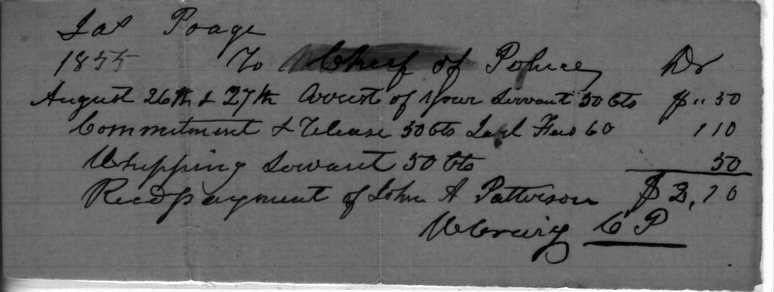 Jas Poage
1855 To Chief of Police, Dr
August 26th & 27th Arrest of your Servant 50 cts $ " 50
Commitment & Release 50 cts Jail Fees 60 1 10
Whipping Servant 50 cts 50
Recd payment of John A Patterson $ 2,10
C P